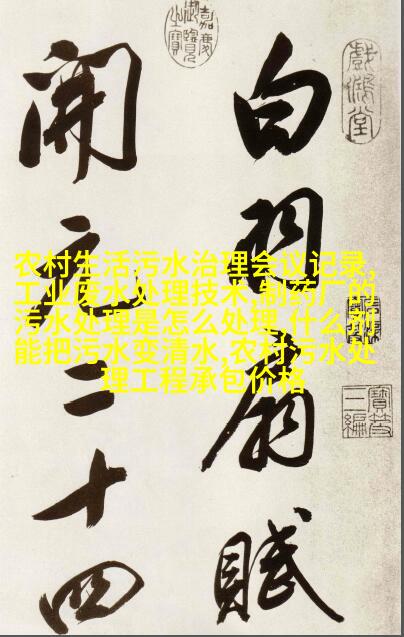 白羽扇賦
開元二十四
农村生活污水治理会议记录,
工业废水处理技术,制药厂的
污水处理是怎么处理,什么剂
能把污水变清水,农村污水处
理工程承包价格
戲鴻堂
嘉慶
御覽
之寶
寶笈
三編